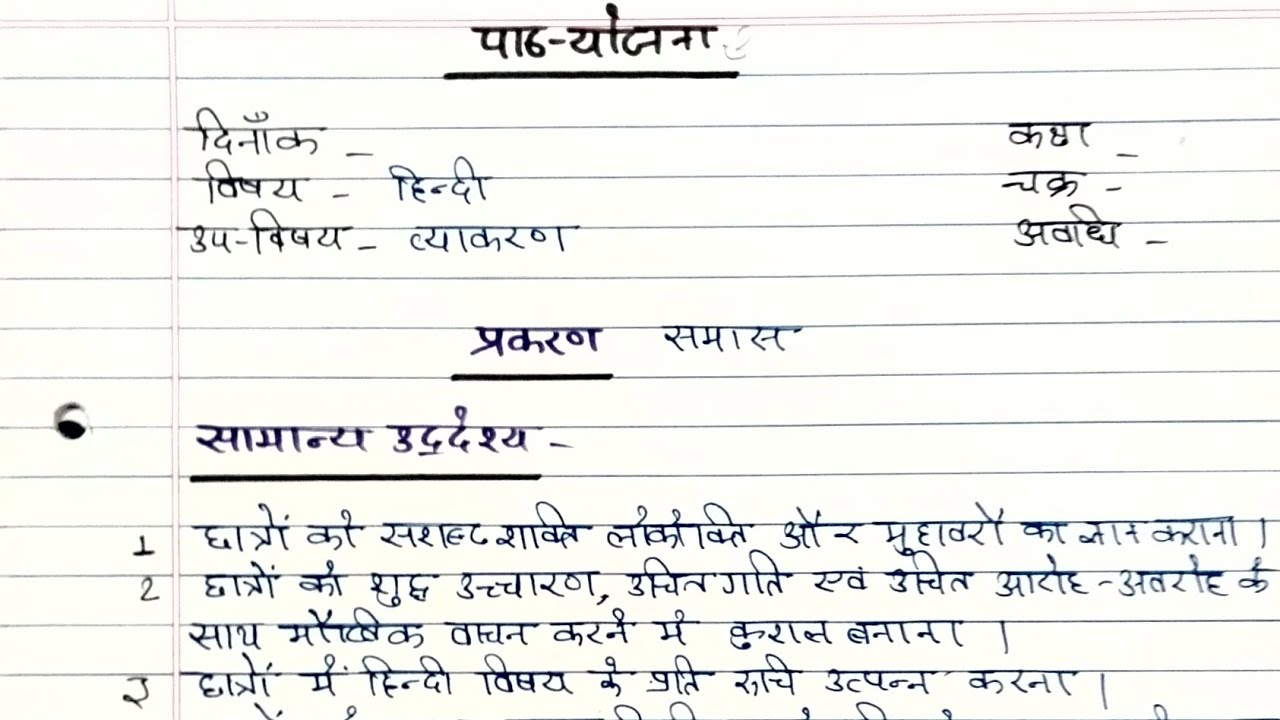 पाठ-योजना
दिनाँक - कक्षा -
विषय - हिन्दी चक्र -
उप-विषय - व्याकरण अवधि -
प्रकरण समास
सामान्य उद्देश्य -
1 छात्रों को शक्ति लोकोक्ति और मुहावरों का ज्ञान कराना।
2 छात्रों को शुद्ध उच्चारण, उचित गति एवं उचित आरोह-अवरोह के
साथ मौखिक वाचन करने में कुशल बनाना।
3 छात्रों में हिन्दी विषय के प्रति रूचि उत्पन्न करना।